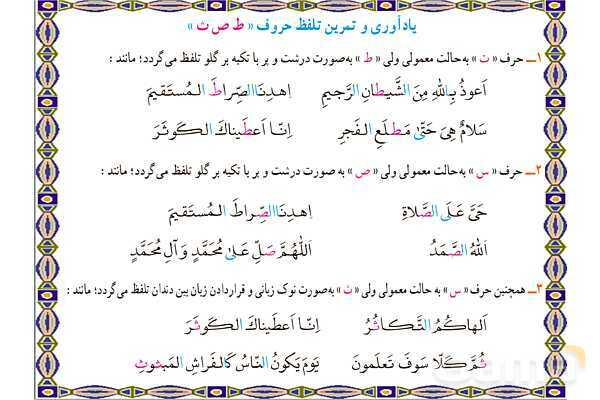 یادآوری و تمرین تلفظ حروف « ط ص ث »
۱ــ حرف « ت » به‌حالت معمولی ولی « ط » به‌صورت درشت و پر با تکیه بر گلو تلفظ می‌گردد؛ مانند :
اَعوذُ بِاللّٰهِ مِنَ الشَّیطانِ الرَّجیمِ اِهدِنَا الصِّراطَ المُستَقیمَ
سَلامٌ هِیَ حَتّیٰ مَطلَعِ الفَجرِ اِنّا اَعطَیناكَ الکَوثَرَ
۲ــ حرف « س » به‌حالت معمولی ولی « ص » به صورت درشت و پر با تکیه بر گلو تلفظ می‌گردد؛ مانند :
حَیَّ عَلَی الصَّلاةِ اِهدِنَا الصِّراطَ المُستَقیمَ
اَللّٰهُ الصَّمَدُ اَللّٰهُمَّ صَلِّ عَلیٰ مُحَمَّدٍ وَ آلِ مُحَمَّدٍ
۳ــ همچنین حرف « س » به حالت معمولی ولی « ث » به‌صورت نوک زبانی و قراردادن زبان بین دندان تلفظ می‌گردد؛ مانند :
اَلهاکُمُ التَّکاثُرُ اِنّا اَعطَیناكَ الکَوثَرَ
ثُمَّ کَلّا سَوفَ تَعلَمونَ یَومَ یَکونُ النّاسُ کَالفَراشِ المَبثوثِ